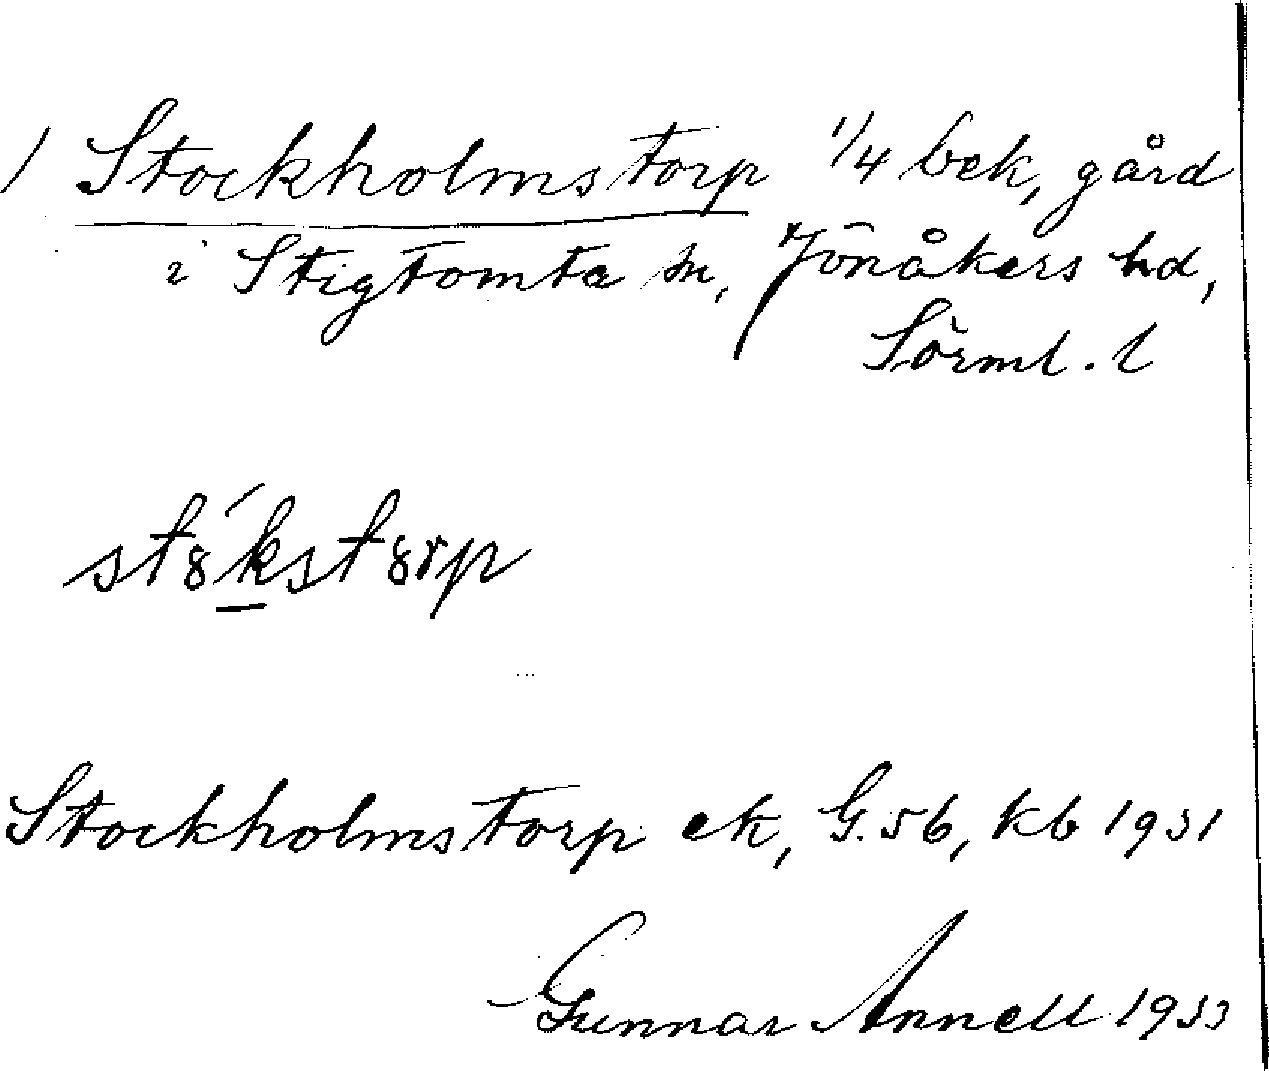 / Stockholmstorp 1/4 bek, gård
i Stigtomta sn, Jönåkers hd,
Sörml. l
st8́kst8rp
Stockholmstorp ek, G. 56, kb 1931
Gunnar Annell 1933